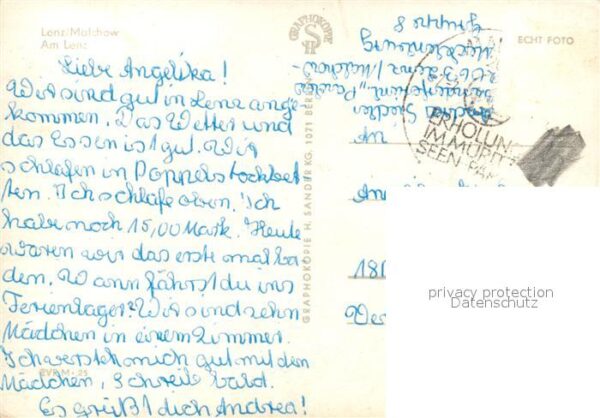 Lenz/Malchow
Am Lenz
Liebe Angelika!
Wir sind gut in Lenz ange-
kommen. Das Wetter und
das Essen ist gut. Wir
schlafen in Doppelstockbet-
ten. Ich schlafe oben. Ich
habe noch 15,00 Mark. Heute
waren wir das erste mal ba
den. Wann fährst du ins
Ferienlager? Wir sind zehn
Mädchen in einem Zimmer.
Ich versteh mich gut mit den
Mädchen, Schreib bald.
Es grüßt dich Andrea!
EVK M - 25
GRAPHOKOPIE H. SANDER KG. 1071 BERLIN
GRAPHOKOPIE
H S
ECHT FOTO
Andrea
2063 Lenz/Malchow
Mecklenburg
Gruppe 8
ERHOLUN
IM MÜRIT
SEEN-PA
An
181
privacy protection
Datenschutz